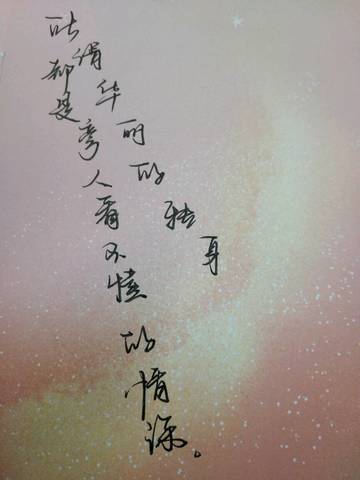 所谓华丽的转身
都是旁人看不懂的情深。